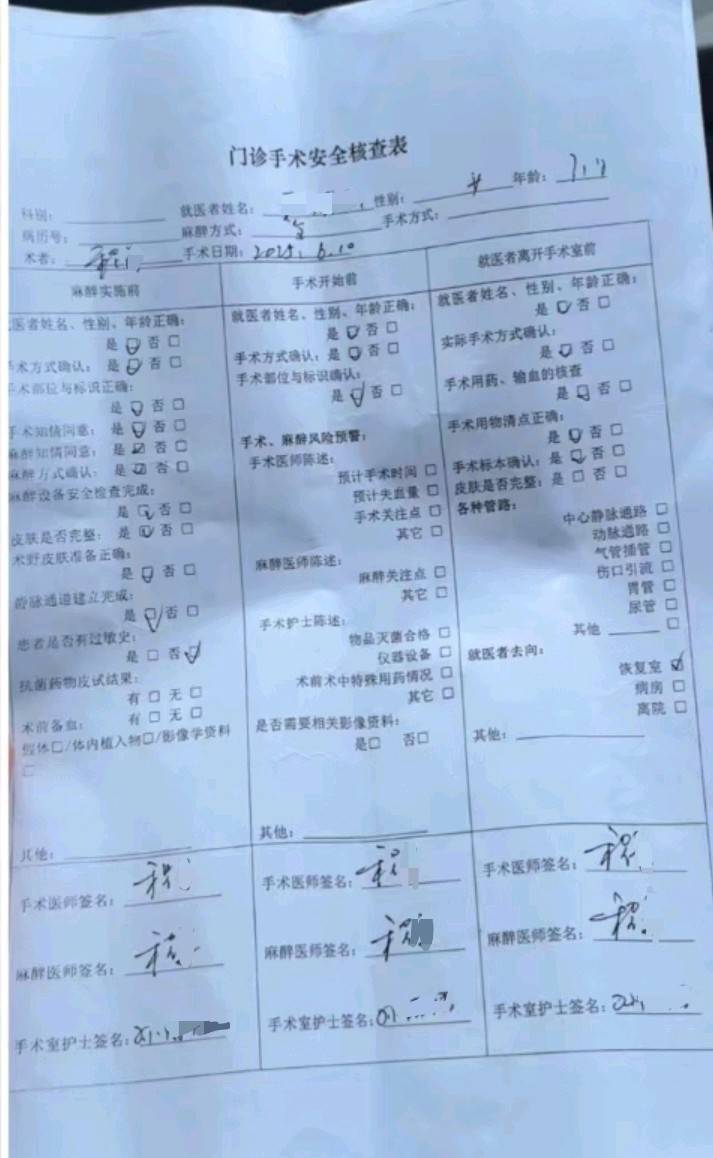 门诊手术安全核查表
科别： 就医者姓名： 性别： 女 年龄：
病历号： 麻醉方式： 全 手术方式：
术者： 手术日期：2025.6.10
麻醉实施前
医者姓名、性别、年龄正确：
是 ☑ 否 □
术方式确认： 是 ☑ 否 □
术部位与标识正确：
是 ☑ 否 □
术知情同意： 是 ☑ 否 □
麻醉知情同意： 是 ☑ 否 □
麻醉方式确认： 是 ☑ 否 □
麻醉设备安全检查完成：
是 ☑ 否 □
皮肤是否完整： 是 ☑ 否 □
术野皮肤准备正确：
是 ☑ 否 □
静脉通道建立完成：
是 ☑ 否 □
患者是否有过敏史：
是 □ 否 ☑
抗菌药物皮试结果：
有 □ 无 □
术前备血： 有 □ 无 □
假体□/体内植入物□/影像学资料
□
其他：
手术医师签名：
麻醉医师签名：
手术室护士签名：
手术开始前
就医者姓名、性别、年龄正确：
是 ☑ 否 □
手术方式确认：是 ☑ 否 □
手术部位与标识确认：
是 ☑ 否 □
手术、麻醉风险预警：
手术医师陈述：
预计手术时间 □
预计失血量 □
手术关注点 □
其它 □
麻醉医师陈述：
麻醉关注点 □
其它 □
手术护士陈述：
物品灭菌合格 □
仪器设备 □
术前术中特殊用药情况 □
其它 □
是否需要相关影像资料：
是□ 否□
其他：
手术医师签名：
麻醉医师签名：
手术室护士签名：
就医者离开手术室前
就医者姓名、性别、年龄正确：
是 ☑ 否 □
实际手术方式确认：
是 ☑ 否 □
手术用药、输血的核查
是 ☑ 否 □
手术用物清点正确：
是 ☑ 否 □
手术标本确认：是 ☑ 否 □
皮肤是否完整：是 □ 否 □
各种管路：
中心静脉通路 □
动脉通路 □
气管插管 □
伤口引流 □
胃管 □
尿管 □
其他 □
就医者去向：
恢复室 ☑
病房 □
离院 □
其他：
手术医师签名：
麻醉医师签名：
手术室护士签名：